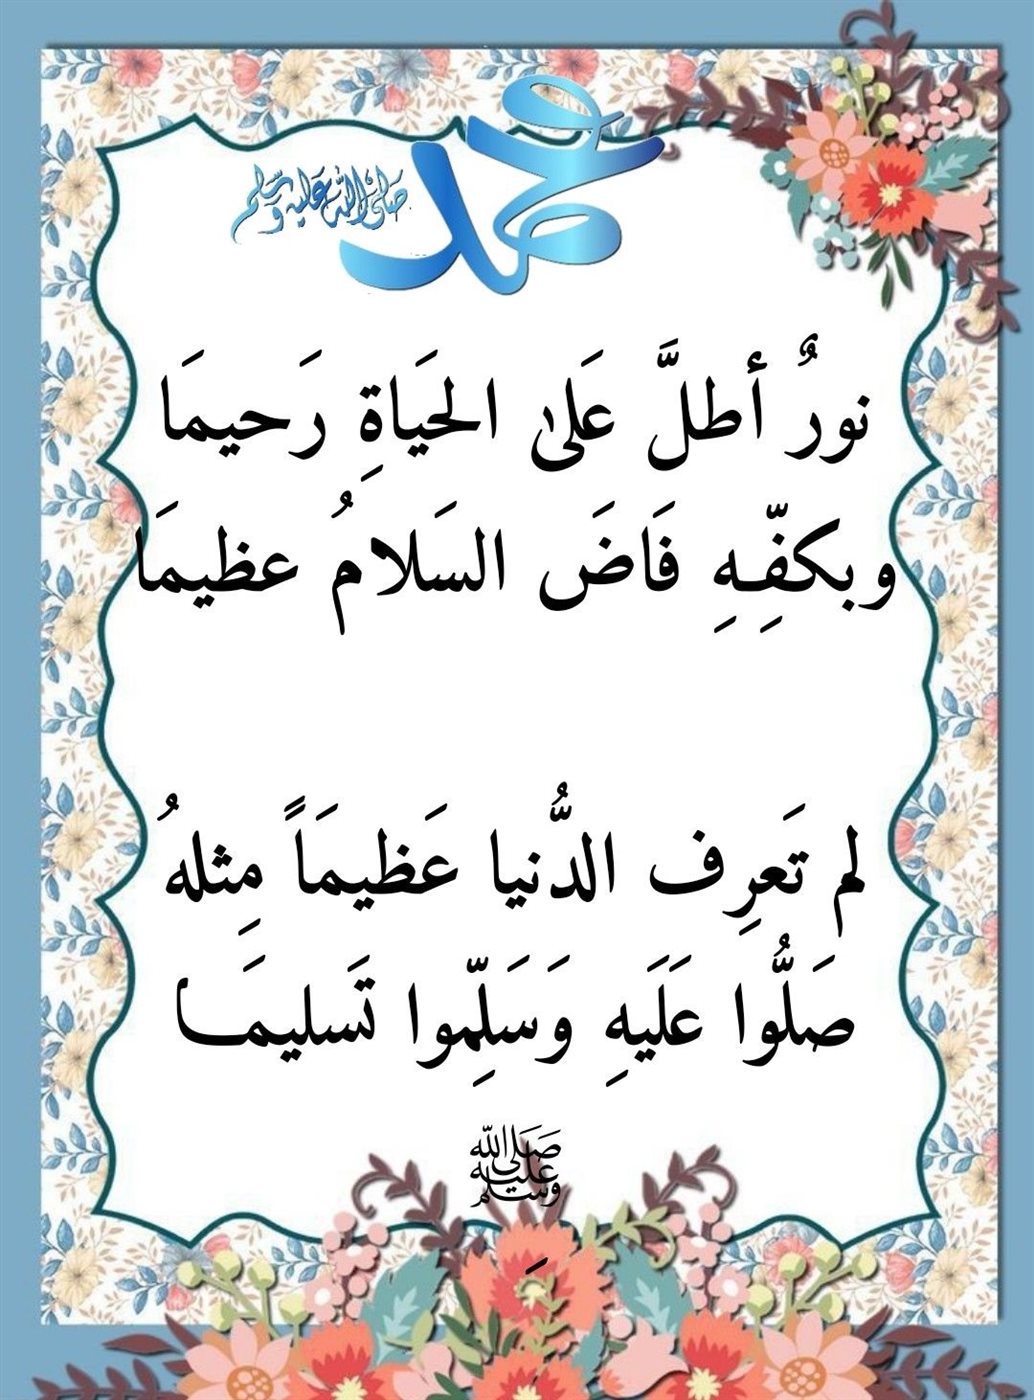 محمد
صلى الله عليه وسلم
نورٌ أطلَّ عَلىٰ الحَيَاةِ رَحيمَا
وبكفِّهِ فَاضَ السَلامُ عظيمَا
لم تَعرِف الدُّنيا عَظيمَاً مِثلهُ
صَلُّوا عَلَيهِ وَسَلِّموا تَسليمَـا
صَلَى اللّٰه عليه وسلم